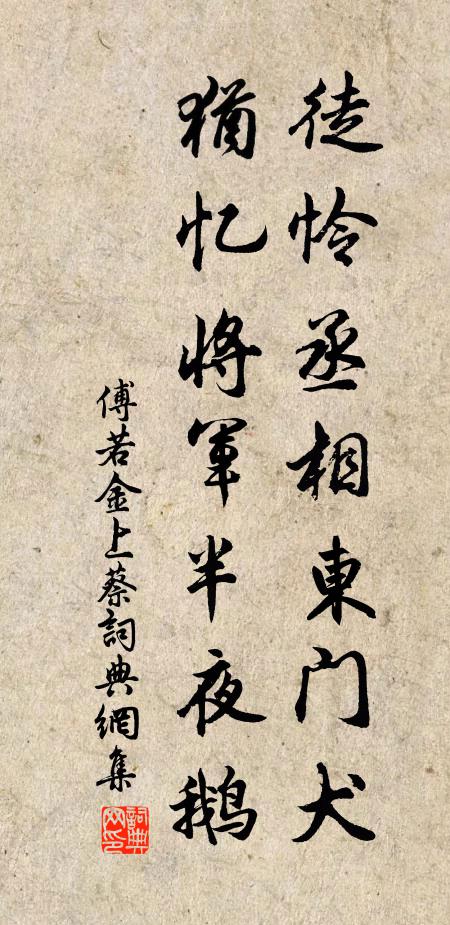 徒怜丞相東门犬
猶忆將軍半夜鵝
傅若金上蔡詞典網集
詞典网印